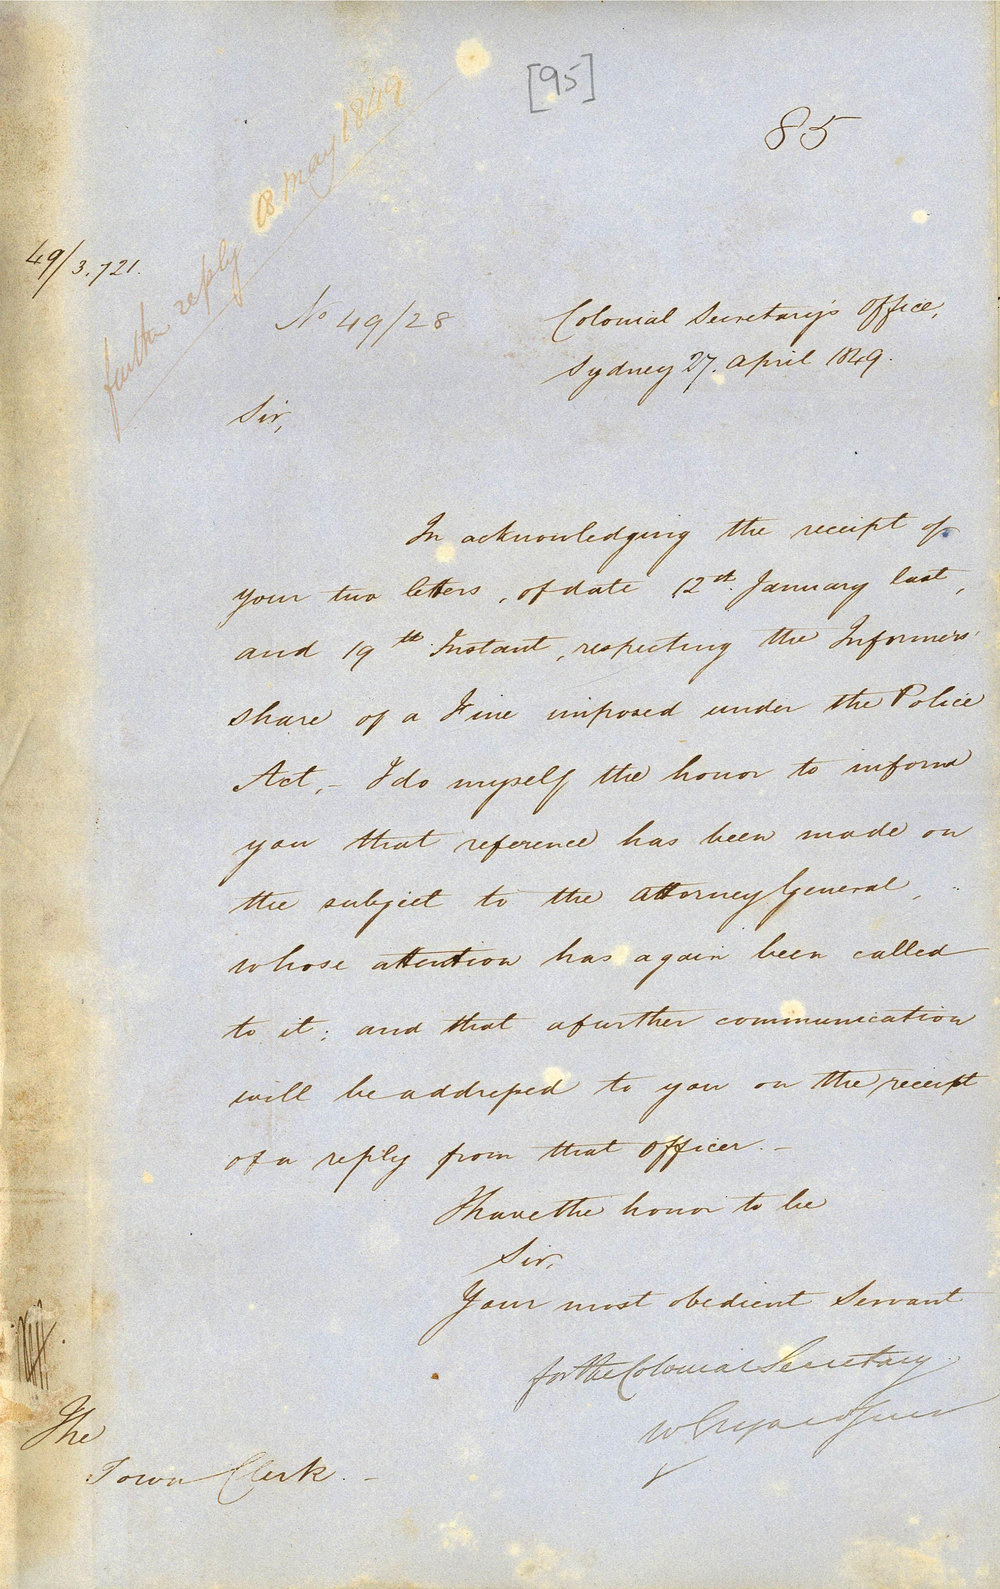 [95]
85
further reply 8 May 1849
49/3.721.
No 49/28
Colonial Secretary's Office,
Sydney 27. April 1849.
Sir,
In acknowledging the receipt of
your two letters, of date 12th January last,
and 19th Instant, respecting the Informers'
share of a Fine imposed under the Police
Act,- I do myself the honor to inform
you that reference has been made on
the subject to the Attorney General,
whose attention has again been called
to it; and that a further communication
will be addressed to you on the receipt
of a reply from that Officer.-
I have the honor to be
Sir,
Your most obedient Servant
for the Colonial Secretary
W
The
Town Clerk.-